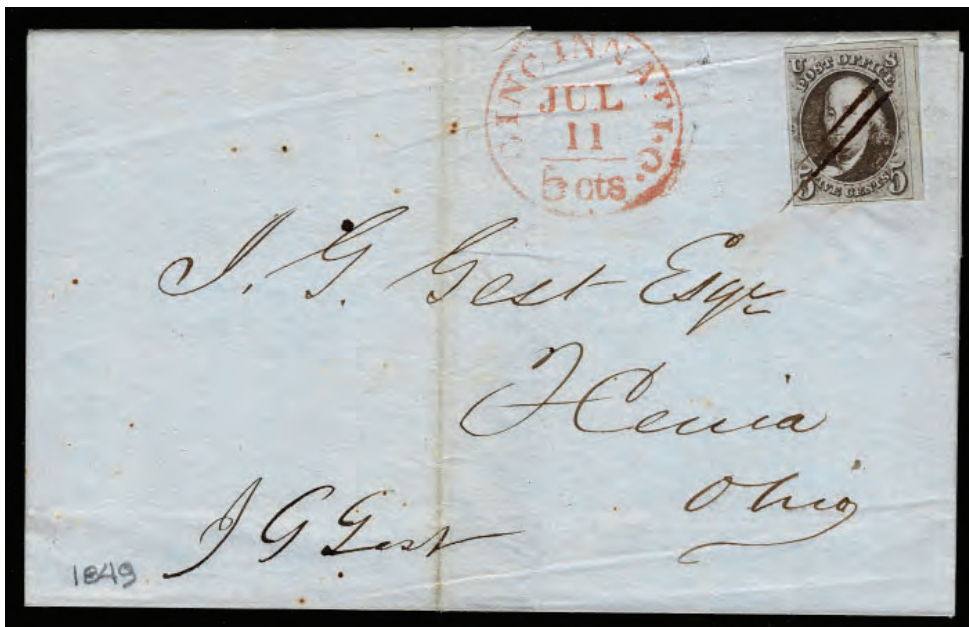 CINCINNATI. O.
JUL
11
5 cts
U S
POST OFFICE
5 FIVE CENTS 5
J. G. Gest Esqr
Xenia
Ohio
J G Gest
1849